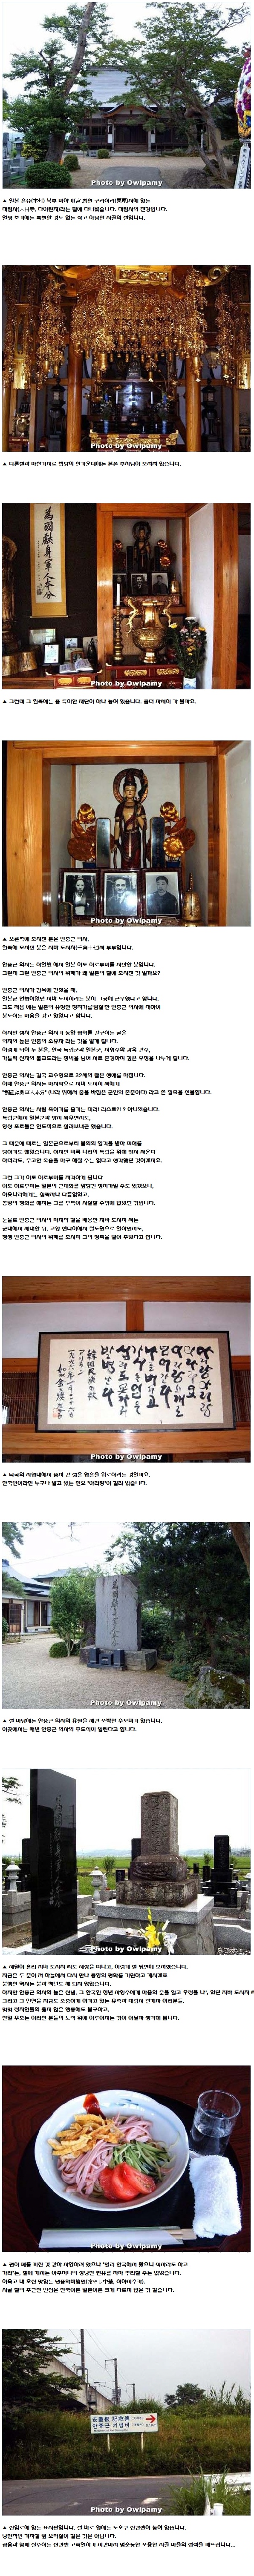 Photo by Owlpamy
▲ 일본 혼슈(本州) 북부 미야기(宮城)현 구리하라(栗原)시에 있는
대림사(大林寺, 다이린지)라는 절에 다녀왔습니다. 대림사의 전경입니다.
얼핏 보기에는 특별할 것도 없는 작고 아담한 시골의 절입니다.
Photo by Owlpamy
▲ 다른절과 마찬가지로 법당의 한가운데에는 분은 부처님이 모셔져 있습니다.
為國獻身軍人本分
Photo by Owlpamy
▲ 그런데 그 왼쪽에는 좀 특이한 제단이 하나 놓여 있습니다. 좀더 자세히 가 볼까요.
Photo by Owlpamy
▲ 오른쪽에 모셔진 분은 안중근 의사,
왼쪽에 모셔진 분은 지바 도시치(千葉十七)씨 부부입니다.
안중근 의사는 하얼빈 에서 일본 이토 히로부미를 사살한 분입니다.
그런데 그런 안중근 의사의 위패가 왜 일본의 절에 모셔진 것 일까요?
안중근 의사가 감옥에 갇혔을 때,
일본군 헌병이었던 지바 도시치라는 분이 그곳에 근무했다고 합니다.
그도 처음 에는 일본의 유능한 정치가를 암살한 안중근 의사에 대하여
분노하는 마음을 갖고 있었다고 합니다.
하지만 점차 안중근 의사가 동양 평화를 갈구하는 굳은
의지와 높은 인품의 소유자 라는 것을 알게 됩니다.
이렇게 되어 두 분은, 한국 독립군과 일본군, 사형수와 감옥 간수,
가톨릭 신자와 불교도라는 장벽을 넘어 서로 존경하며 깊은 우정을 나누게 됩니다.
안중근 의사는 결국 교수형으로 32세의 짧은 생애를 마칩니다.
이때 안중근 의사는 마지막으로 지바 도시치 씨에게
"爲國獻身軍人本分" (나라 위해서 몸을 바침은 군인의 본분이다) 라고 쓴 필묵을 선물합니다.
안중근 의사는 사람 죽이기를 즐기는 테러 리스트?! ? 아니었습니다.
독립군에서 일본군과 맞서 싸우면서도,
항상 포로들은 인도적으로 살려보내곤 했습니다.
그 때문에 때로는 일본군으로부터 불의의 일격을 받아 피해를
당하기도 했었습니다. 하지만 비록 나라의 독립을 위해 맞서 싸운다
하더라도, 무고한 목숨을 마구 해칠 수는 없다고 생각했던 것이겠지요.
그런 그가 이토 히로부미를 저격하게 됩니다
이토 히로부미는 일본의 근대화를 앞당긴 정치가일 수도 있겠으나,
이웃나라에게는 침략자나 다름없었고,
동양의 평화를 해치는 그를 부득이 사살할 수밖에 없었던 것입니다.
눈물로 안중근 의사의 마지막 길을 배웅한 지바 도시치 씨는
군대에서 제대한 뒤, 고향 센다이에서 철도원으로 일하면서도,
평생 안중근 의사의 위패를 모시며 그의 명복을 빌어 주었다고 합니다.
Photo by Owlpamy
▲ 타국의 사형대에서 숨져 간 젊은 영혼을 위로하려는 것일까요.
한국인이라면 누구나 알고 있는 민요 "아리랑"이 걸려 있습니다.
為國獻身軍人本分
Photo by Owlpamy
▲ 절 마당에는 안중근 의사의 유필을 새긴 소박한 추모비가 있습니다.
이곳에서는 매년 안중근 의사의 추도식이 열린다고 합니다.
Photo by Owlpamy
▲ 세월이 흘러 지바 도시치 씨도 세상을 떠나고, 이렇게 절 뒤편에 모셔졌습니다.
지금은 두 분이 저 하늘에서 다시 만나 동양의 평화를 기원하고 계시겠죠
불행한 역사는 불과 백년도 채 되지 않았습니다.
하지만 안중근 의사의 높은 신념, 그 한국인 청년 사형수에게 마음의 문을 열고 우정을 나누었던 지바 도시치 씨
그리고 그 인연을 지금도 소중하게 여기고 있는 유족과 대림사 관계자 여러분들.
몇몇 정치인들의 옳지 않은 행동에도 불구하고,
한일 우호는 이러한 분들의 노력 위에 이루어지는 것이 아닐까 생각해 봅니다.
Photo by Owlpamy
▲ 괜히 폐를 끼친 것 같아 사양하려 했으나 "멀리 한국에서 왔으니 식사라도 하고
가라"는, 절에 계시는 아주머니의 상냥한 권유를 차마 뿌리칠 수는 없었습니다.
시골 절의 푸근한 인심은 한국이든 일본이든 크게 다르지 않은 것 같습니다.
安重根 記念碑
안중근 기념비
Photo by Owlpamy
▲ 진입로에 있는 표지판입니다. 절 바로 옆에는 도호쿠 신칸센이 놓여 있습니다.
낭만적인 기차길 옆 오막살이 같은 것은 아닙니다.
굉음과 함께 질주하는 신칸센 고속열차가 시간마저 멈춘듯한 조용한 시골 마을의 정적을 깨뜨립니다...